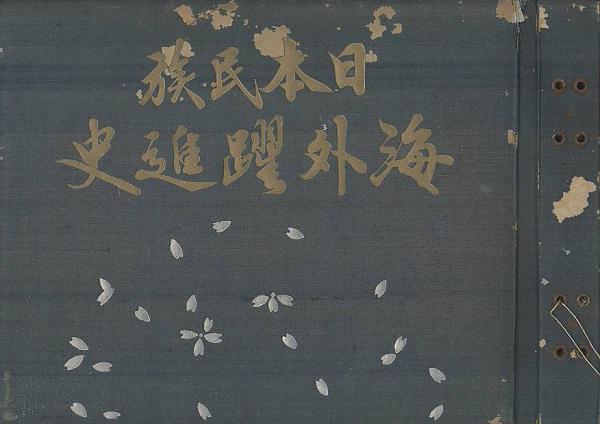 日本民族
海外躍進史